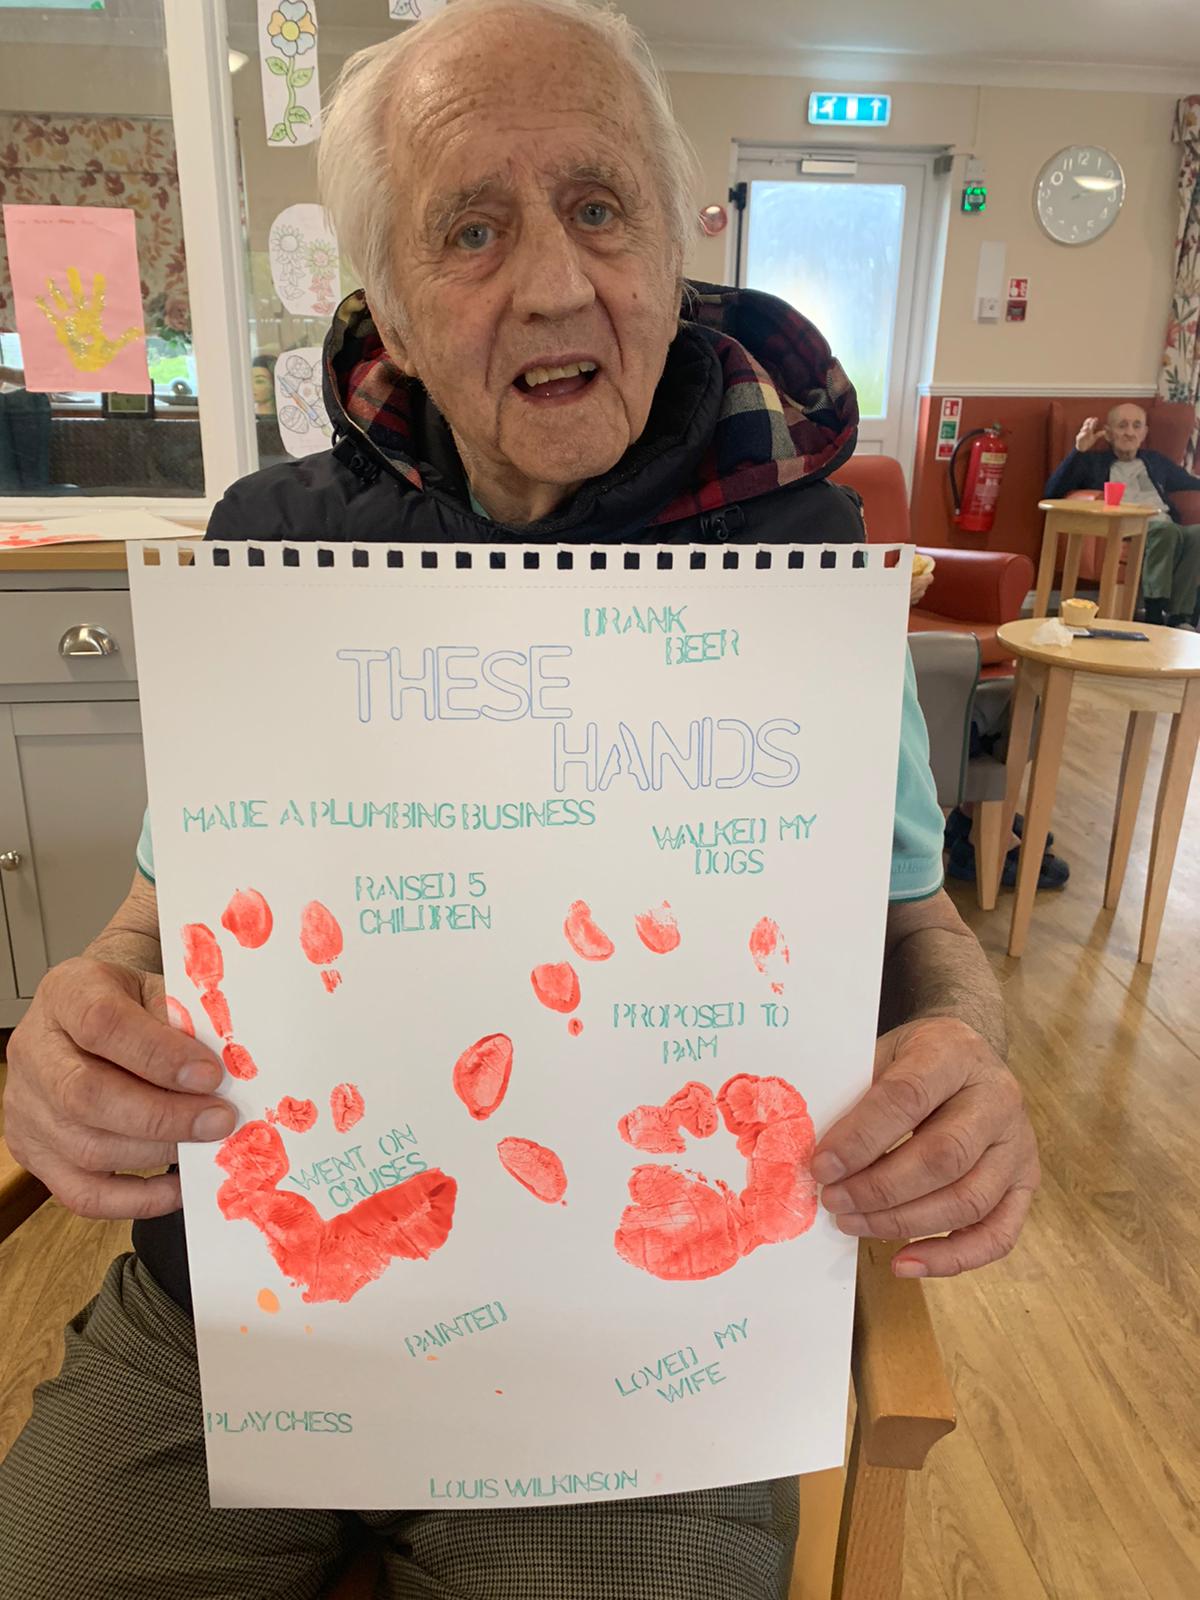 DRANK
BEER
THESE
HANDS
MADE A PLUMBING BUSINESS
WALKED MY
DOGS
RAISED 5
CHILDREN
PROPOSED TO
PAM
WENT ON
CRUISES
PAINTED
LOVED MY
WIFE
PLAY CHESS
LOUIS WILKINSON